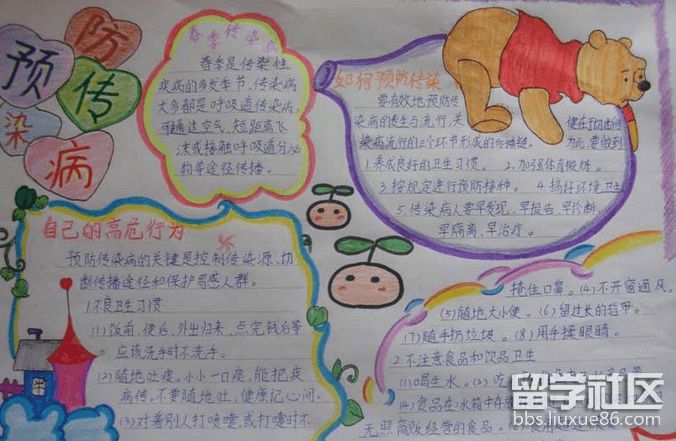 预防传染病
春季传染病
春季是传染性
疾病的多发季节,传染病
大多都是呼吸道传染病,
可通过空气、短距离飞
沫或接触呼吸道分泌
物等途径传播。
如何预防传染
要有效地预防传
染病的发生与流行,关
染病流行的三个环节形成的传播链。
为此,要做到
1.养成良好的卫生习惯。 2.加强体育锻炼。
3.按规定进行预防接种。 4.搞好环境卫生
5.传染病人要早发现,早报告,早诊断,
早隔离,早治疗。
自己的高危行为
预防传染病的关键是控制传染源、切
断传播途径和保护易感人群。
1.不良卫生习惯
(1)饭前,便后,外出归来,点完钱后等
应该洗手时不洗手。
(2)随地吐痰。小小一口痰,能把疾
病传,不要随地吐,健康记心间。
(3)对着别人打喷嚏,或打嚏时不
捂住口罩。(4)不开窗通风。
(5)随地大小便。(6)留过长的指甲。
(7)随手扔垃圾。(8)用手揉眼睛。
2.不注意食品和饮品卫生
(1)喝生水。(2)吃
(4)食品在冰箱中存
无照商贩经营的食品。
留学社区
bbs.liuxue86.com